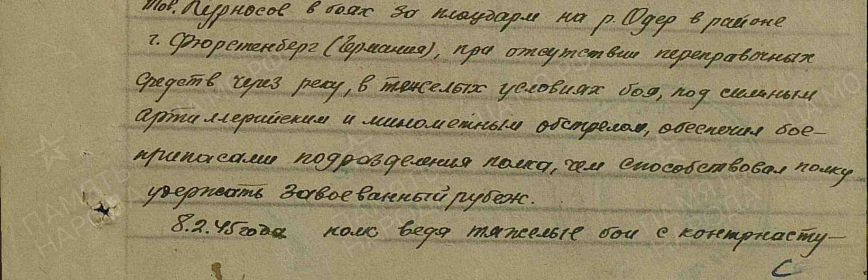 Тов. Курносов в боях за плацдарм на р. Одер в районе
г. Фюрстенберг (Германия), при отсутствии переправочных
средств через реку, в тяжелых условиях боя, под сильным
артиллерийским и минометным обстрелом, обеспечил бое-
припасами подразделения полка, чем способствовал полку
удержать завоеванный рубеж.
8.2.45 года полк ведя тяжелые бои с контрнасту-